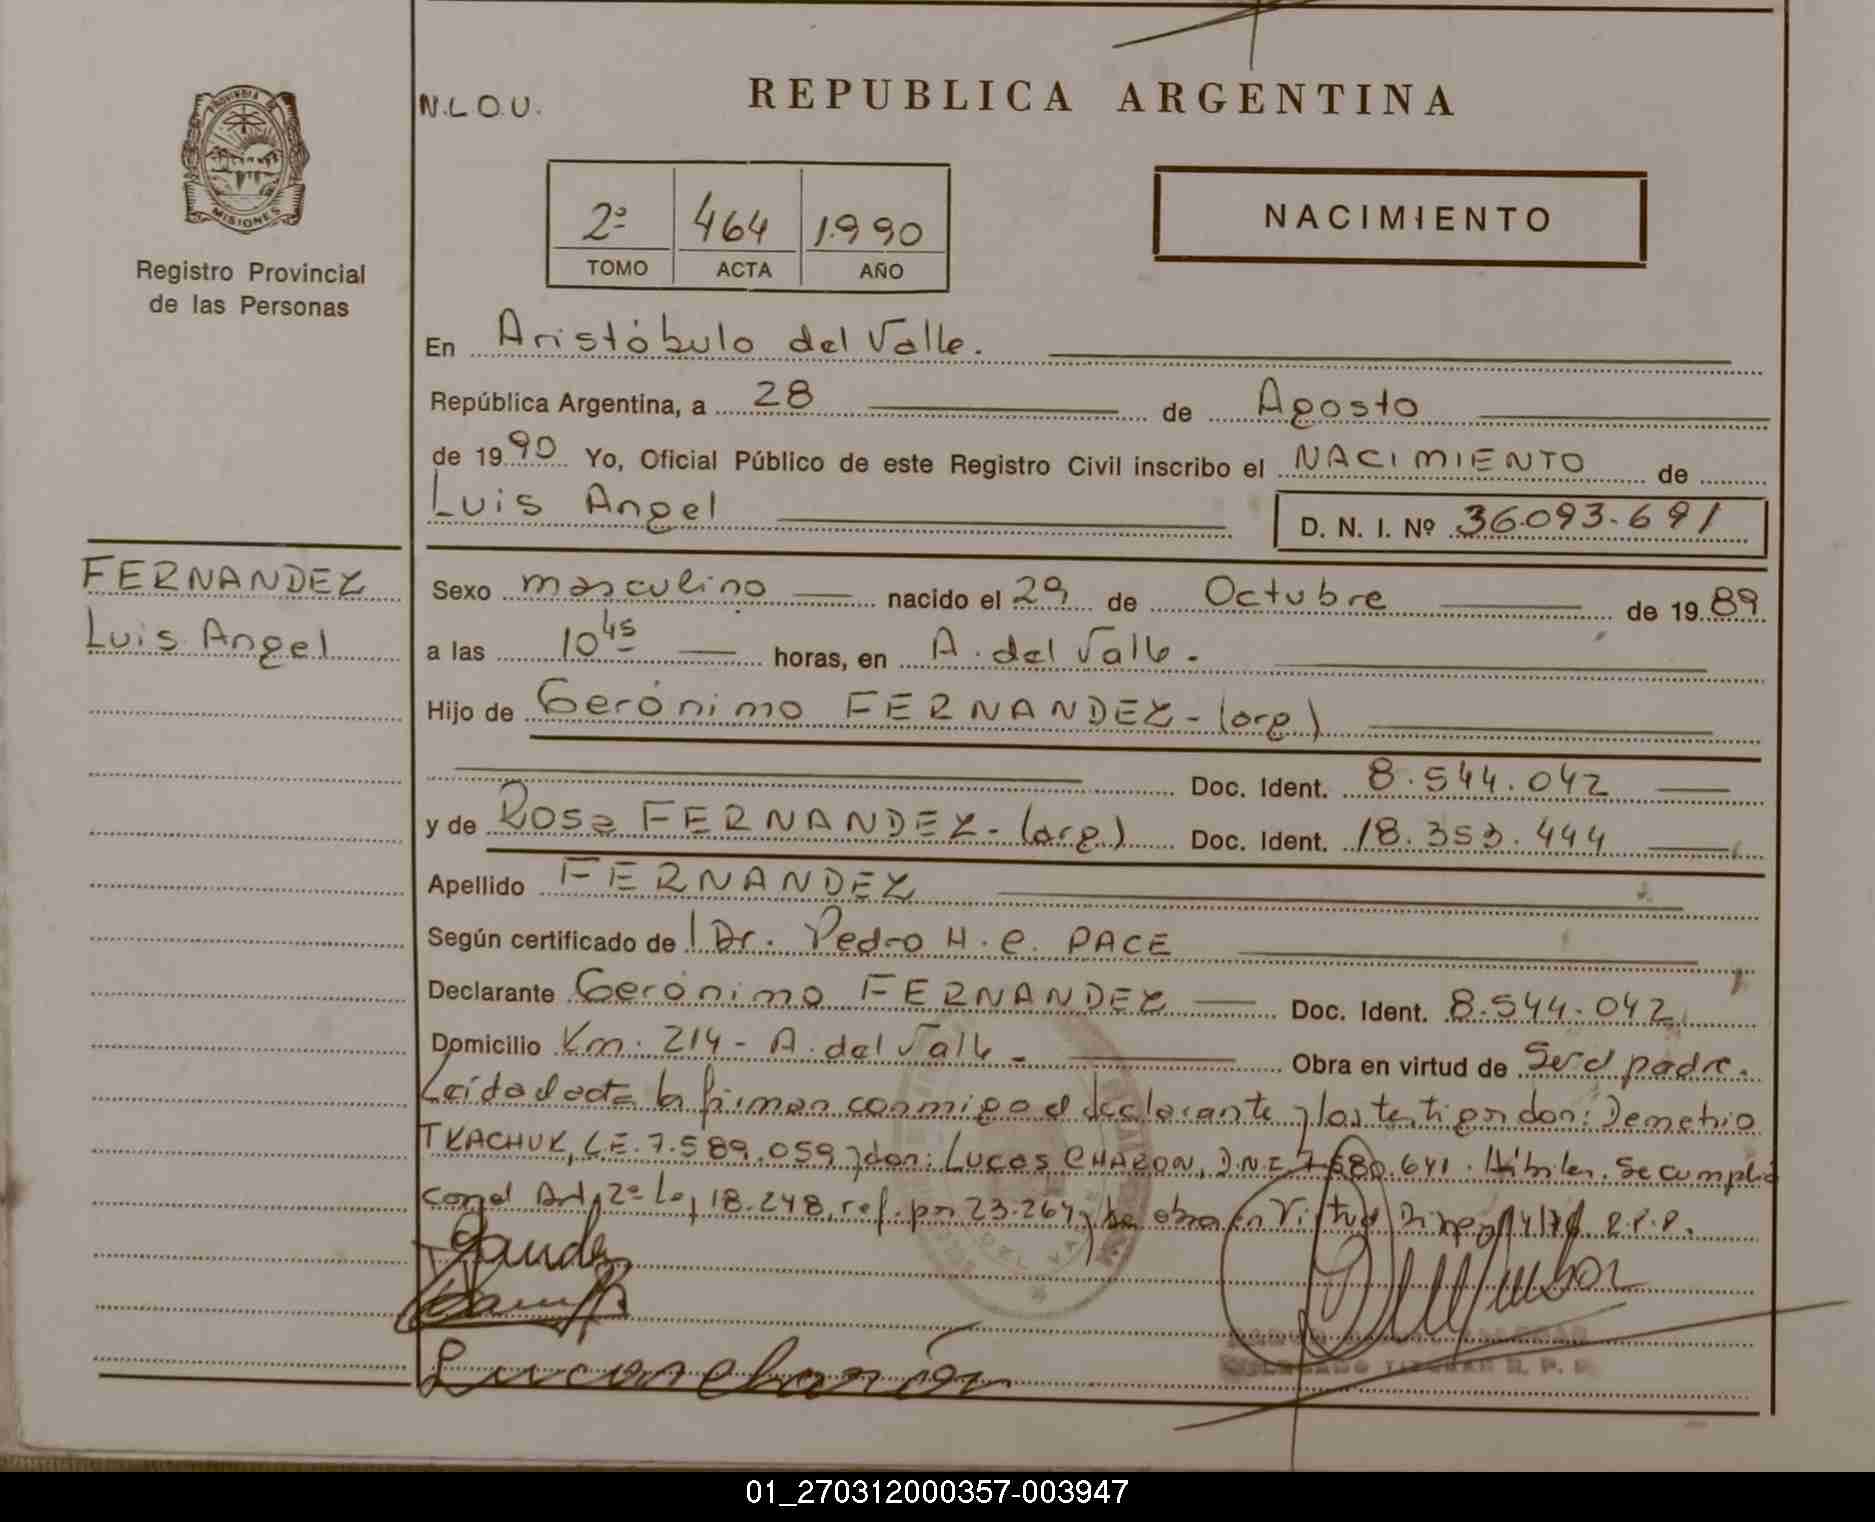 REPUBLICA ARGENTINA
N.L.O.U.
PROVINCIA DE
MISIONES
Registro Provincial
de las Personas
NACIMIENTO
2º 464 1.990
TOMO ACTA AÑO
En Aristóbulo del Valle.
República Argentina, a 28 de Agosto
de 1990 Yo, Oficial Público de este Registro Civil inscribo el NACIMIENTO de
Luis Angel D. N. I. Nº 36.093.691
FERNANDEZ
Luis Angel
Sexo masculino nacido el 29 de Octubre de 1989
a las 10 45 horas, en A. del Valle.
Hijo de Gerónimo FERNANDEZ - (arg)
Doc. Ident. 8.544.042
y de Rosa FERNANDEZ - (arg) Doc. Ident. 18.353.444
Apellido FERNANDEZ
Según certificado de l Dr. Pedro H. C. PACE
Declarante Gerónimo FERNANDEZ Doc. Ident. 8.544.042
Domicilio Km. 214 - A. del Valle - Obra en virtud de Ser el padre.
Leída el acta la firman conmigo el declarante y los testigos don: Demetrio
TKACHUK, L.E. 7.589.059 y don: Lucas CHARON, D.N.I. 7.580.641. Hábiles. Se cumplió
con el Art. 2º Ley 18.248, ref. por 23.264 y se obra en Virtud R.P.P.
Lucas Charón
01_270312000357-003947